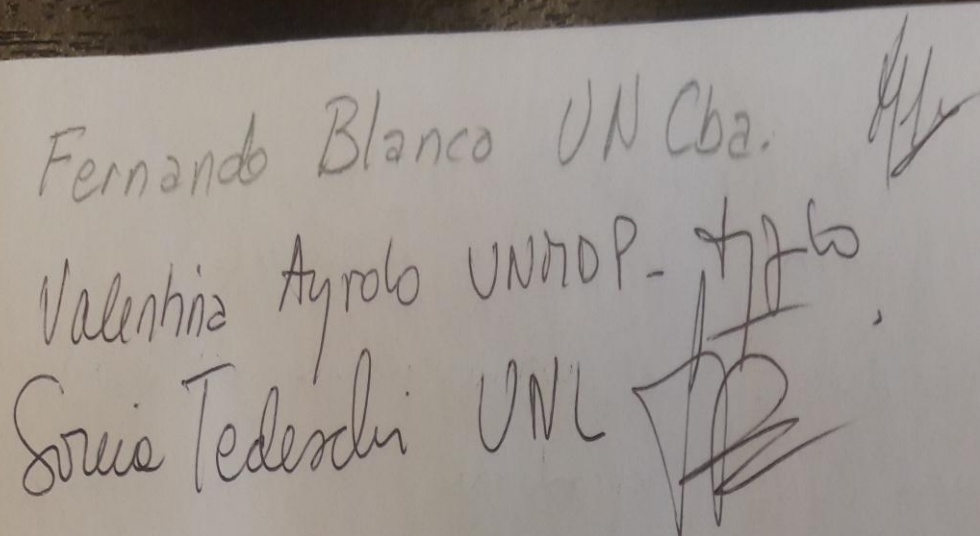 Fernando Blanco UN Cba.
Valentina Ayrolo UNMDP-
Sonia Tedeschi UNL